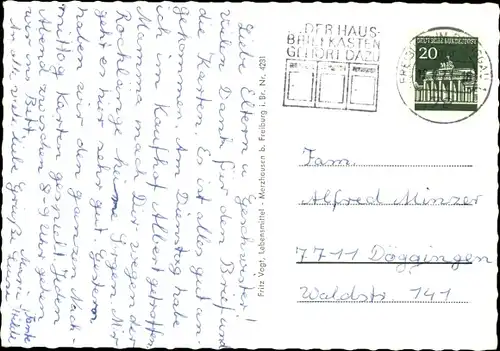 Liebe Eltern u. Geschwister!
Vielen Dank für den Brief und
die Karten. Es ist alles gut an-
gekommen. Am Dienstag habe
ich im Kaufhof Albert getroffen.
Mamma mach Dir wegen der
Kochlange keine Sorgen. Mir
geht es hier sehr gut. Gestern
haben wir den ganzen Nach-
mittag Karten gespielt. Jeden
Tag zwischen 8-9 Uhr gehen
wir ins Bett.
Viele liebe Grüße
Fritz Vogt, Lebensmittel - Merzhausen b. Freiburg i. Br. Nr. 4281
DER HAUS-
BRIEFKASTEN
GEHÖRT DAZU
DEUTSCHE BUNDESPOST
20
Fam.
Alfred Minzer
7711 Döggingen
Waldstr 141